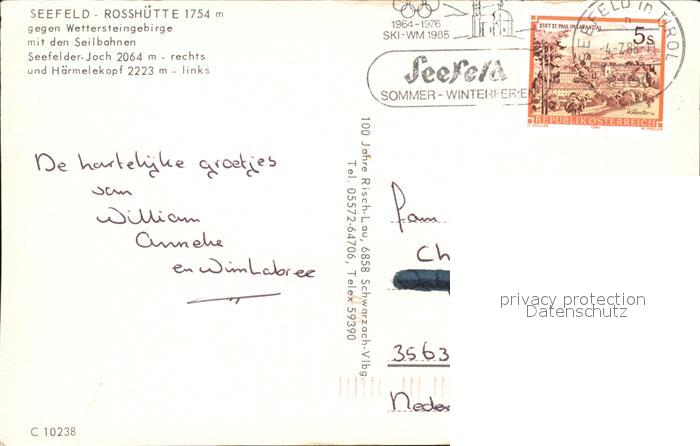 SEEFELD - ROSSHÜTTE 1754 m
gegen Wettersteingebirge
mit den Seilbahnen
Seefelder-Joch 2064 m - rechts
und Härmelekopf 2223 m - links
1964-1976
SKI-WM 1985
Seefeld
SOMMER-WINTERFERIEN
SEEFELD in TIROL
STIFT ST. PAUL IM LAVANTTAL
5s
REPUBLIK ÖSTERREICH
De hartelijke groetjes
van
William
Anneke
en Wim Labree
100 Jahre Risch-Lau, 6858 Schwarzach-Vlbg.
Tel. 05572-64706, Telex 59390
Fam
Ch
3563
Neder
privacy protection
Datenschutz
C 10238